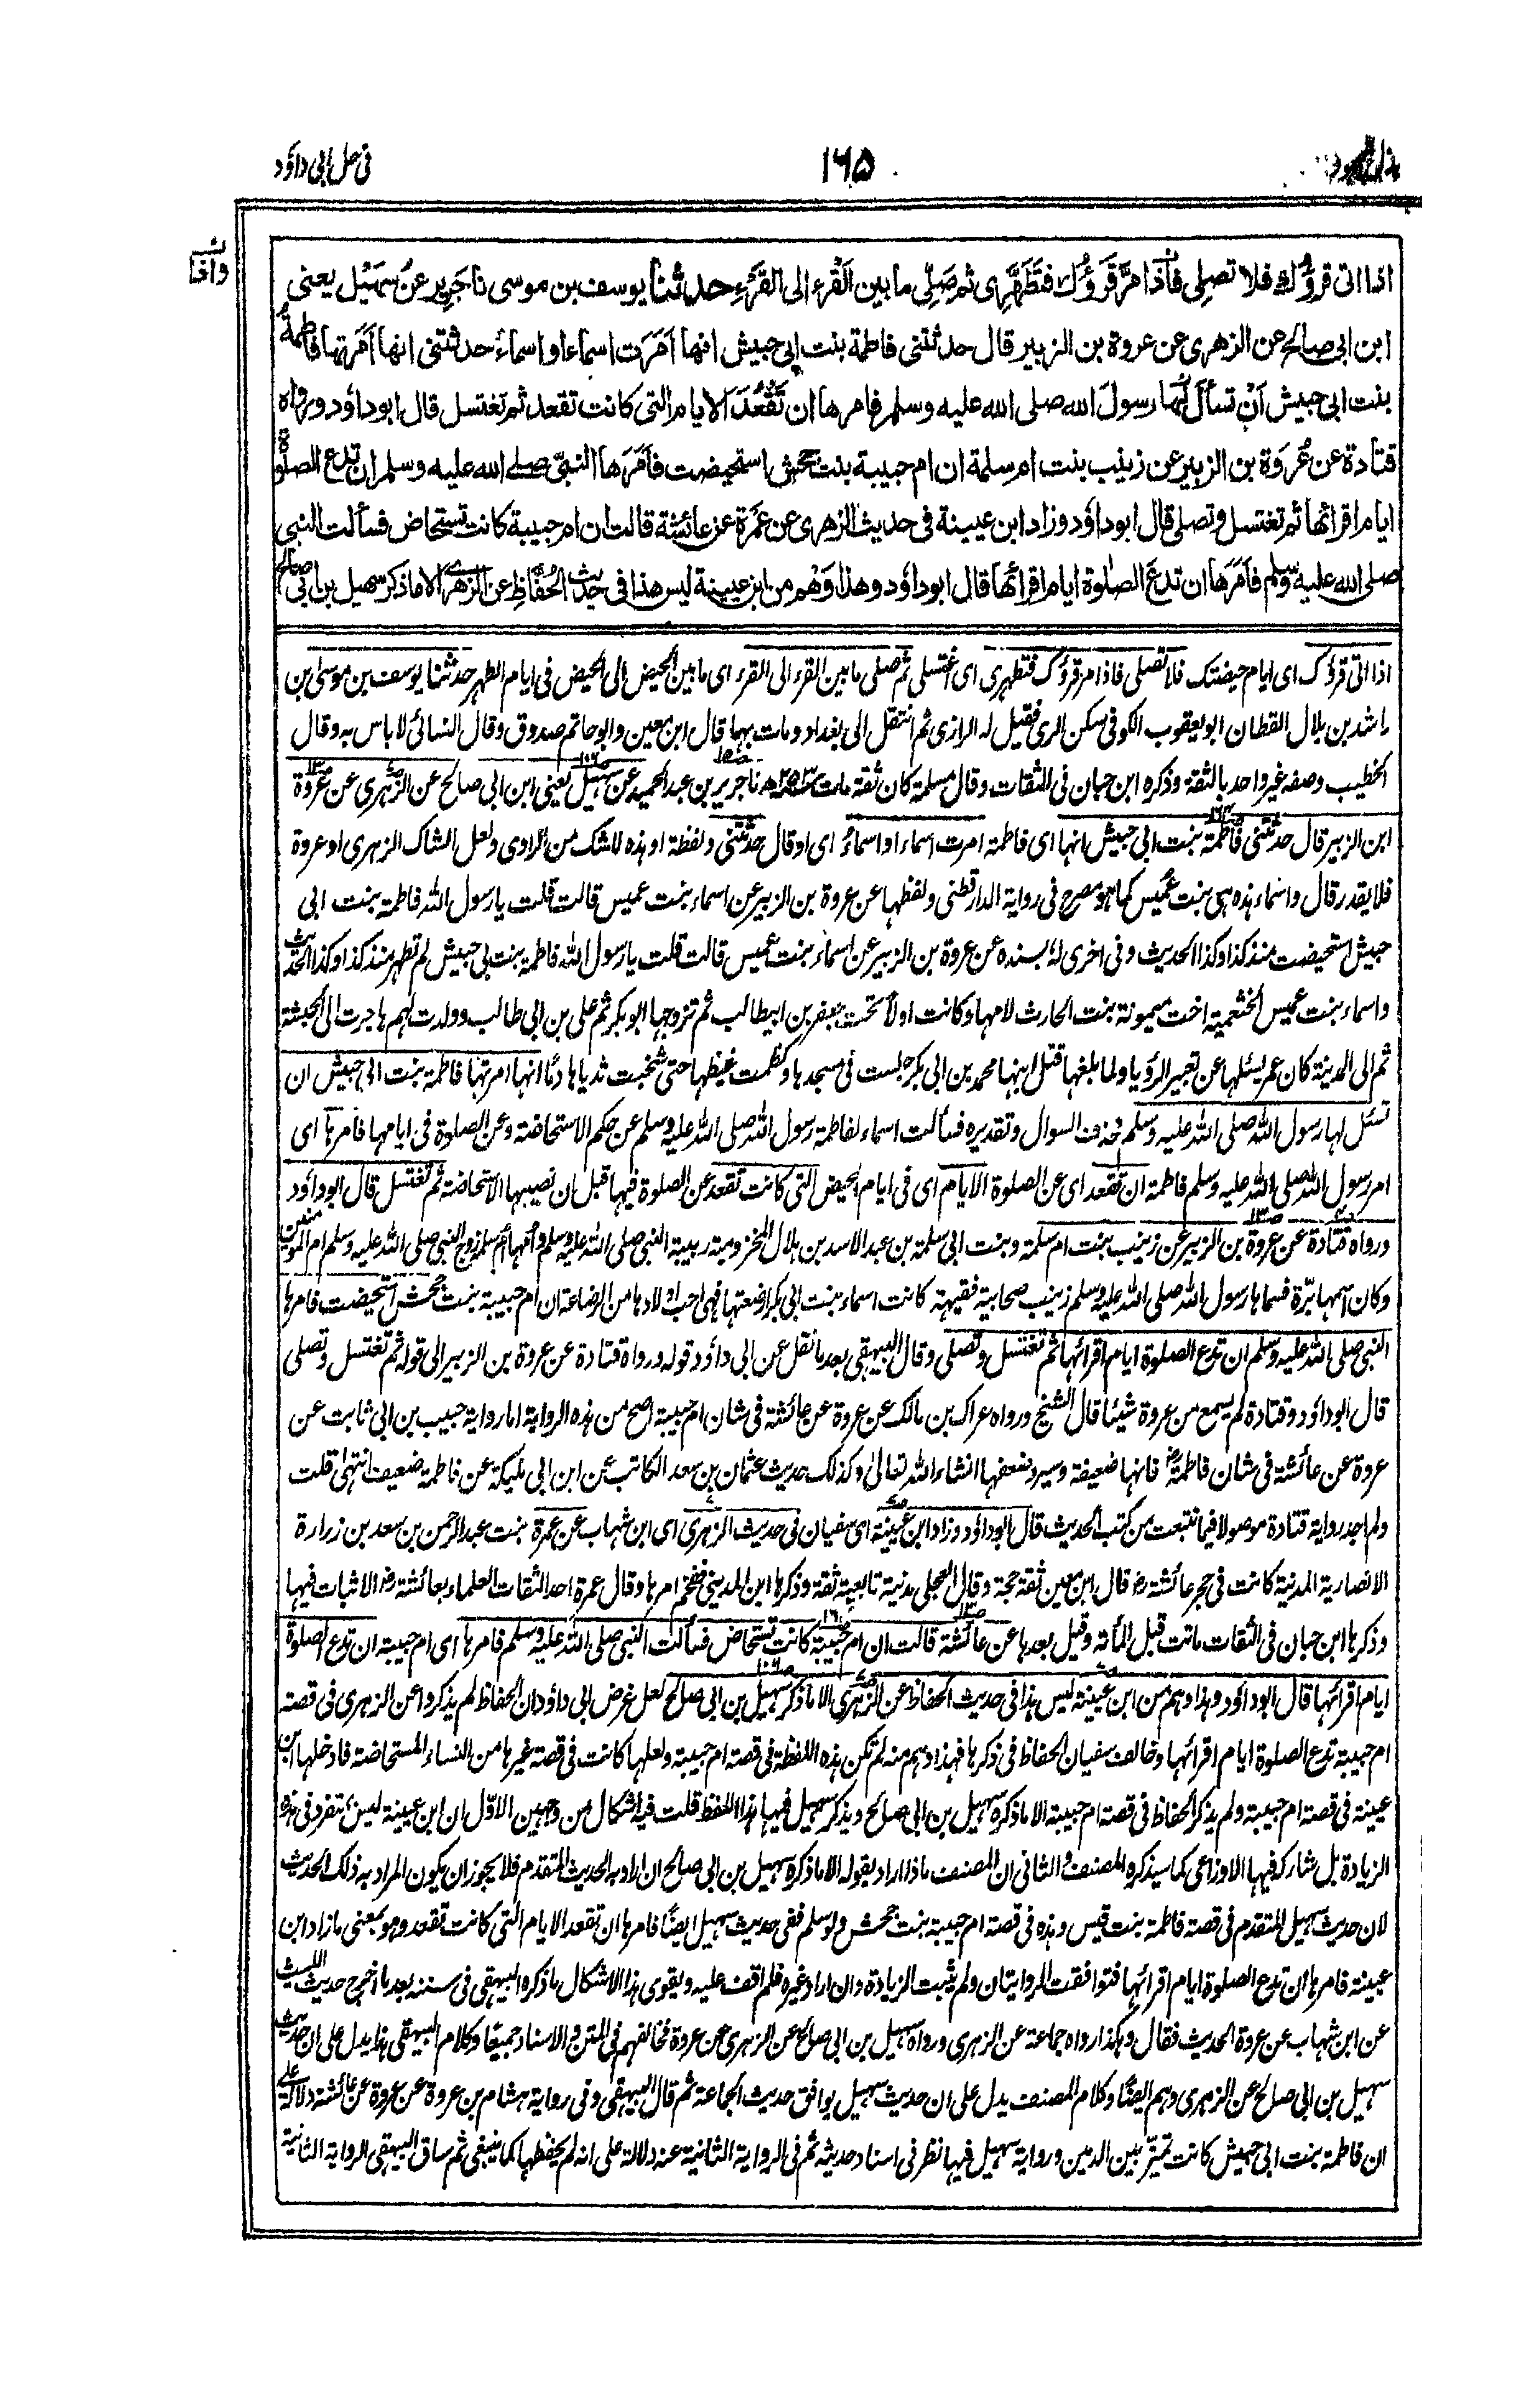 بذل المجهود
١٦٥
فی حل ابی داؤد
واذا
اذا اتی قرؤك فلا تصلی فاذا مرّ قَرَؤُك فتَطَهَّرِی ثم صَلِّی ما بین القَرْء الی القَرْءِ حدثنا یوسف بن موسی نا جَرِیر عن سُهَیْل یعنی
ابن ابی صالح عن الزهری عن عروة بن الزبیر قال حدثتنی فاطمة بنت ابی حبیش انها اَمَرَت اسماء او اسماءُ حدثتنی انها اَمَرَتها فاطمةُ
بنت ابی حبیش اَنْ تسألَ لَهَا رسولَ الله صلی الله علیه وسلم فامرها ان تَقْعُدَ الایام التی کانت تقعد ثم تغتسل قال ابو داؤد ورواه
قتادة عن عُروَة بن الزبیر عن زینب بنت ام سلمة ان ام حبیبة بنت جحش استحیضت فاَمَرَها النبیّ صلی الله علیه وسلم ان تدع الصلٰوة
ایام اقرائها ثم تغتسل وتصلی قال ابو داؤد وزاد ابن عیینة فی حدیث الزهری عن عَمْرَة عن عائشة قالت ان ام حبیبة کانت تستحاض فسألت النبی
صلی الله علیه وسلم فاَمَرَها ان تدعَ الصلٰوة ایام اقرائها قال ابو داؤد وهذا وَهْم من ابن عیینة لیس هذا فی حدیث الحُفّاظِ عن الزهری الا ما ذکر سهیل بن ابی صالح
اذا اتی قرؤک ای ایام حیضتک فلا تصلی فاذا مر قرؤک فتطهری ای اغتسلی ثم صلی ما بین القرء الی القرء ای ما بین الحیض الی الحیض فی ایام الطهر حدثنا یوسف بن موسٰی بن
راشد بن بلال القطان ابو یعقوب الکوفی سکن الری فقیل له الرازی ثم انتقل الی بغداد ومات بها قال ابن معین وابو حاتم صدوق وقال النسائی لا باس به وقال
الخطیب وصفه غیر واحد بالثقة وذکره ابن حبان فی الثقات وقال مسلمة کان ثقة مات ٢٥٣ھ نا جریر بن عبد الحمید عن سهیل یعنی ابن ابی صالح عن الزهری عن عروة
ابن الزبیر قال حدثتنی فاطمة بنت ابی حبیش انها ای فاطمه امرت اسماء او اسماءُ ای او قال حدثتنی ولفظة او هذه للشک من الراوی ولعل الشاک الزهری او عروة
فلا یقدر قال واسماء هذه هی بنت عُمیس کما هو مصرح فی روایة الدارقطنی ولفظها عن عروة بن الزبیر عن اسماء بنت عمیس قالت قلت یا رسول الله فاطمة بنت ابی
حبیش استحیضت منذ کذا وکذا الحدیث وفی اخری له بسنده عن عروة بن الزبیر عن اسماء بنت عمیس قالت قلت یا رسول الله فاطمة بنت ابی حبیش لم تطهر منذ کذا وکذا الحدیث
واسماء بنت عمیس الخثعمیة اخت میمونة بنت الحارث لامها وکانت اولاً تحت جعفر بن ابیطالب ثم تزوجها ابو بکر ثم علی بن ابی طالب وولدت لهم هاجرت الی الحبشة
ثم الی المدینة کان عمر یسئلها عن تعبیر الرؤیا ولما بلغها قتل ابنها محمد بن ابی بکر جلست فی مسجدها وکظمت غیظها حتی شخبت ثدیاها دمًا انها امرتها فاطمة بنت ابی حبیش ان
تسئل لها رسول الله صلی الله علیه وسلم فحذف السوال وتقدیره فسألت اسماء لفاطمة رسول الله صلی الله علیه وسلم عن حکم الاستحاضة وعن الصلوة فی ایامها فامرها ای
امر رسول الله صلی الله علیه وسلم فاطمة ان تقعد ای عن الصلوة الایام ای فی ایام الحیض التی کانت تقعد عن الصلوة فیها قبل ان تصیبها الاستحاضة ثم تغتسل قال ابو داؤد
ورواه قتادة عن عروة بن الزبیر عن زینب بنت ام سلمة وبنت ابی سلمة بن عبد الاسد بن هلال المخزومیة ربیبة النبی صلی الله علیه وسلم وامها ام سلمة زوج النبی صلی الله علیه وسلم ام المومنین
وکان اسمها برّة فسماها رسول الله صلی الله علیه وسلم زینب صحابیة فقیهة کانت اسماء بنت ابی بکر ارضعتها فهی احب اولادها من الرضاعة ان ام حبیبة بنت جحش استحیضت فامرها
النبی صلی الله علیه وسلم ان تدع الصلوة ایام اقرائها ثم تغتسل وتصلی وقال البیهقی بعد ما نقل عن ابی داؤد قوله ورواه قتادة عن عروة بن الزبیر الی قوله ثم تغتسل وتصلی
قال ابو داؤد وقتادة لم یسمع من عروة شیئا قال الشیخ ورواه عراک بن مالک عن عروة عن عائشة فی شان ام حبیبة اصح من هذه الروایة اما روایة حبیب بن ابی ثابت عن
عروة عن عائشة فی شان فاطمة فانها ضعیفة وسیرد ضعفها انشاء الله تعالٰی وکذلک حدیث عثمان بن سعد الکاتب عن ابن ابی ملیکة عن فاطمة ضعیف انتهٰی قلت
ولم اجد روایة قتادة موصولا فیما تتبعت من کتب الحدیث قال ابو داؤد وزاد ابن عیینة ای سفیان فی حدیث الزهری ای ابن شهاب عن عمرة بنت عبد الرحمن بن سعد بن زرارة
الانصاریة المدنیة کانت فی حجر عائشة رض قال ابن معین ثقة حجة وقال العجلی مدنیة تابعیة ثقة وذکرها ابن المدینی ففخم امرها وقال عمرة احد الثقات العلماء بعائشة رض الاثبات فیها
وذکرها ابن حبان فی الثقات ماتت قبل المأتة وقیل بعدها عن عائشة قالت ان ام حبیبة کانت تستحاض فسألت النبی صلی الله علیه وسلم فامرها ای ام حبیبة ان تدع الصلوة
ایام اقرائها قال ابو داؤد وهذا وهم من ابن عیینة لیس هذا فی حدیث الحفاظ عن الزهری الا ما ذکر سهیل بن ابی صالح لعل غرض ابی داؤد ان الحفاظ لم یذکروا عن الزهری فی قصة
ام حبیبة تدع الصلوة ایام اقرائها وخالف سفیان الحفاظ فی ذکرها فهذا وهم منه لم تکن هذه اللفظة فی قصة ام حبیبة ولعلها کانت فی قصة غیرها من النساء المستحاضة فادخلها ابن
عیینة فی قصة ام حبیبة ولم یذکر الحفاظ فی قصة ام حبیبة الا ما ذکره سهیل بن ابی صالح ویذکر سهیل فیها هذا اللفظ قلت فیه اشکال من وجهین الاوّل ان ابن عیینة لیس بمتفرد فی هذه
الزیادة بل شارکه فیها الاوزاعی کما سیذکره المصنف والثانی ان المصنف ماذا اراد بقوله الا ما ذکره سهیل بن ابی صالح ان اراد به الحدیث المتقدم فلا یجوز ان یکون المراد به ذلک الحدیث
لان حدیث سهیل المتقدم فی قصة فاطمة بنت قیس وهذه فی قصة ام حبیبة بنت جحش ولو سلم ففی حدیث سهیل ایضًا فامرها ان تقعد الایام التی کانت تقعد وهو بمعنی ما زاد ابن
عیینة فامرها ان تدع الصلوة ایام اقرائها فتوافقت الروایتان ولم تثبت الزیادة وان اراد غیره فلم اقف علیه ویقوی هذا الاشکال ما ذکره البیهقی فی سننه بعد ما اخرج حدیث اللیث
عن ابن شهاب عن عروة الحدیث فقال وهکذا رواه جماعة عن الزهری ورواه سهیل بن ابی صالح عن الزهری عن عروة فخالفهم فی المتن والاسناد جمیعًا وکلام البیهقی هذا یدل علی ان حدیث
سهیل بن ابی صالح عن الزهری وهم ایضًا وکلام المصنف یدل علی ان حدیث سهیل یوافق حدیث الجماعة ثم قال البیهقی وفی روایة هشام بن عروة عن عروة عن عائشة دلالة علی
ان فاطمة بنت ابی حبیش کانت تمیّز بین الدمین وروایة سهیل فیها نظر فی اسناد حدیثه ثم فی الروایة الثانیة عنه دلالة علی انه لم یحفظها کما ینبغی ثم ساق البیهقی الروایة الثانیة